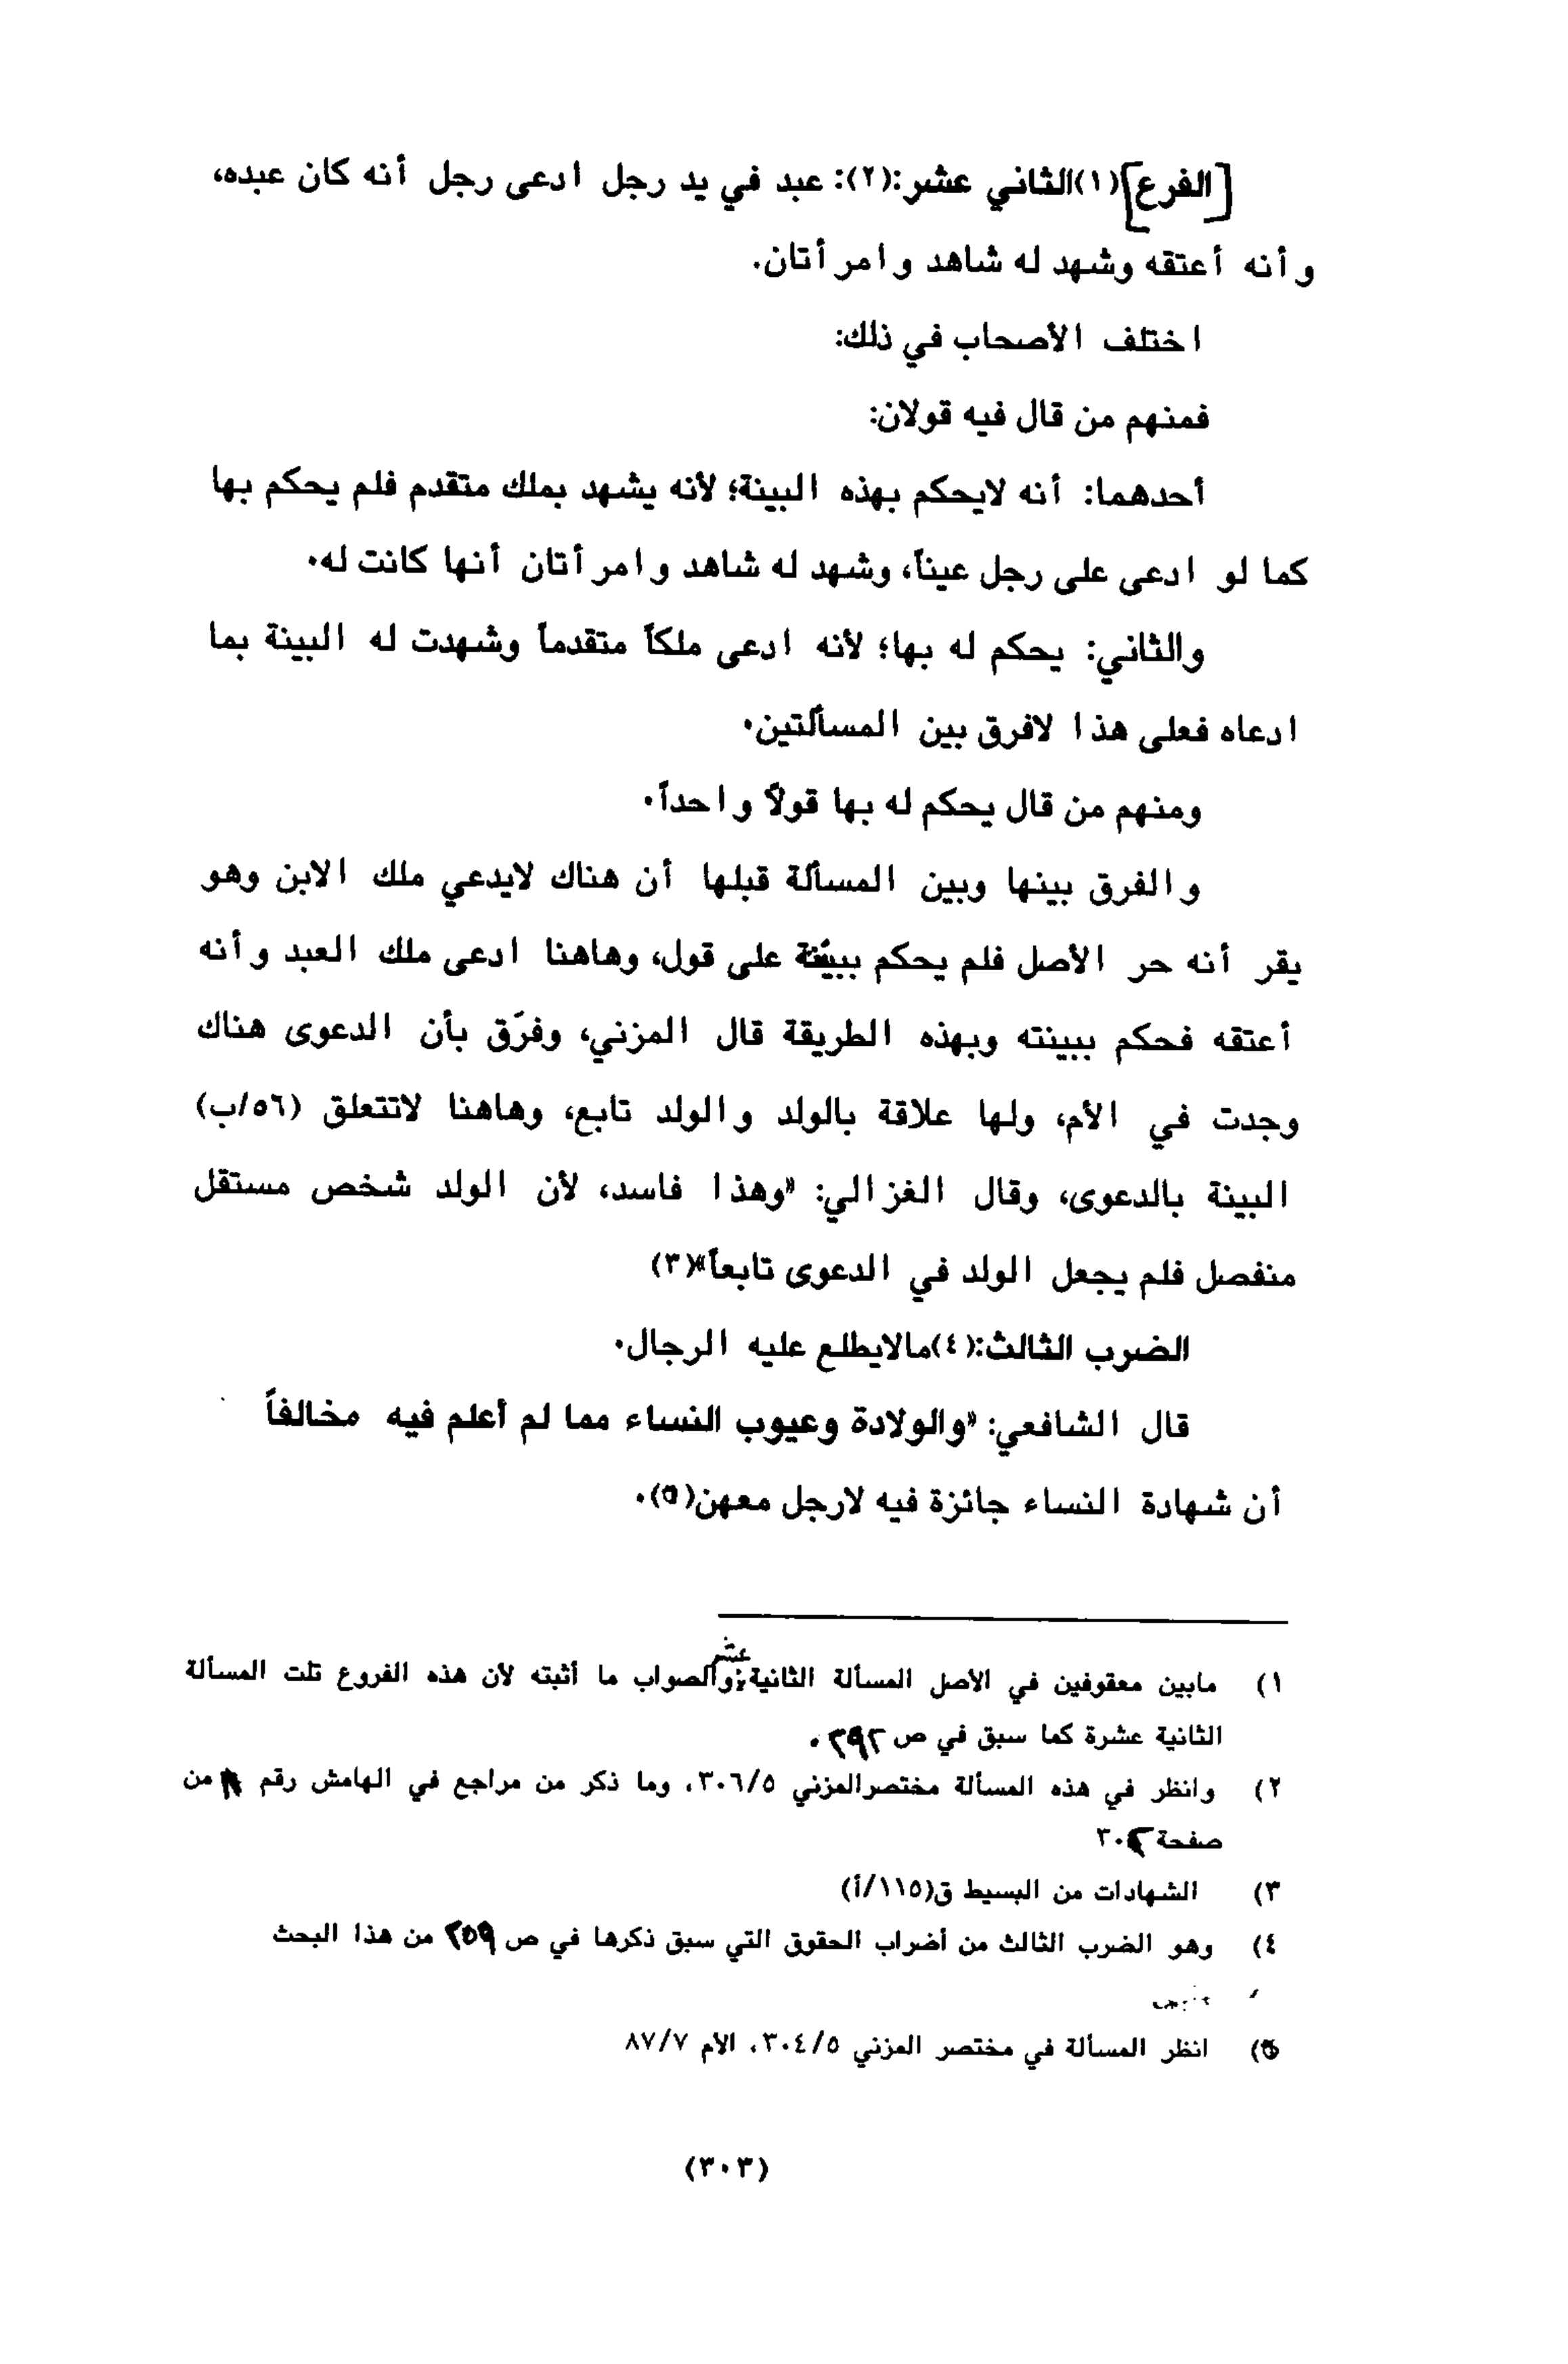 [الفرع](١)الثاني عشر:(٢): عبد في يد رجل ادعى رجل أنه كان عبده،
وأنه أعتقه وشهد له شاهد وامرأتان.
اختلف الأصحاب في ذلك:
فمنهم من قال فيه قولان:
أحدهما: أنه لايحكم بهذه البينة؛ لأنه يشهد بملك متقدم فلم يحكم بها
كما لو ادعى على رجل عيناً، وشهد له شاهد وامرأتان أنها كانت له.
والثاني: يحكم له بها؛ لأنه ادعى ملكاً متقدماً وشهدت له البينة بما
ادعاه فعلى هذا لافرق بين المسألتين.
ومنهم من قال يحكم له بها قولاً واحداً.
والفرق بينها وبين المسألة قبلها أن هناك لايدعي ملك الابن وهو
يقر أنه حر الأصل فلم يحكم ببينة على قول، وهاهنا ادعى ملك العبد وأنه
أعتقه فحكم ببينته وبهذه الطريقة قال المزني، وفرّق بأن الدعوى هناك
وجدت في الأم، ولها علاقة بالولد والولد تابع، وهاهنا لاتتعلق (٥٦/ب)
البينة بالدعوى، وقال الغزالي: «وهذا فاسد، لأن الولد شخص مستقل
منفصل فلم يجعل الولد في الدعوى تابعاً»(٣)
الضرب الثالث:(٤)مالايطلع عليه الرجال.
قال الشافعي: «والولادة وعيوب النساء مما لم أعلم فيه مخالفاً
أن شهادة النساء جائزة فيه لارجل معهن(٥).
١) مابين معقوفين في الأصل المسألة الثانية عشر، والصواب ما أثبته لأن هذه الفروع تلت المسألة
الثانية عشرة كما سبق في ص ٢٩٢.
٢) وانظر في هذه المسألة مختصرالمزني ٣٠٦/٥، وما ذكر من مراجع في الهامش رقم من
صفحة ٣٠٢
٣) الشهادات من البسيط ق(١١٥/أ)
٤) وهو الضرب الثالث من أضراب الحقوق التي سبق ذكرها في ص ٢٥٩ من هذا البحث
٥) انظر المسألة في مختصر المزني ٣٠٤/٥، الأم ٨٧/٧
(٣٠٣)